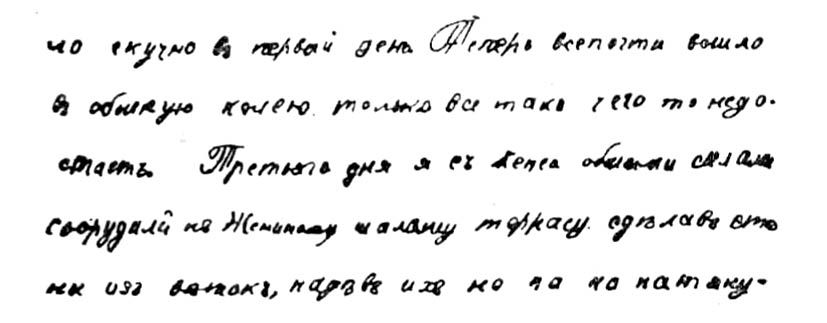 но скучно въ первый день Теперь все почти вошло
въ обычную колею. только все таки чего то недо-
стаетъ. Третьяго дня я съ обшими силами
соорудили на Женином шалашу террасу. сдѣлавъ стѣ
ни изъ вѣтокъ, нарвѣвъ ихъ но на на натяну-